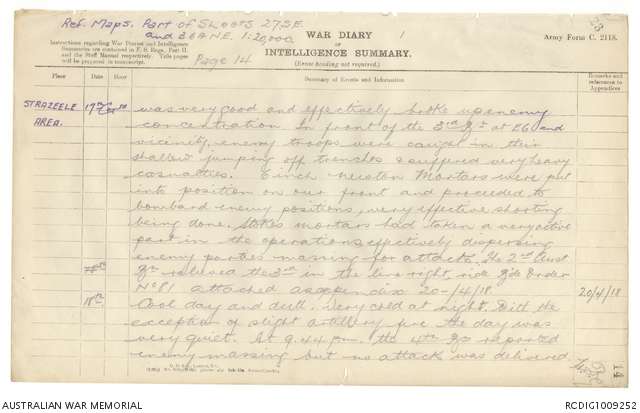 Ref. Maps. Part of SHEETS 27SE.
and 36ANE. 1:20,000
Page 14
WAR DIARY
or
INTELLIGENCE SUMMARY.
(Erase heading not required.)
Army Form C. 2118.
23
Instructions regarding War Diaries and Intelligence
Summaries are contained in F. S. Regs., Part II.
and the Staff Manual respectively. Title pages
will be prepared in manuscript.
Place Date Hour Summary of Events and Information Remarks and references to Appendices
STRAZEELE 17th was very good and effectively broke up enemy
AREA. concentration. In front of the 3rd Bn at E6 and
vicinity enemy troops were caught in their
shallow jumping off trenches & suffered very heavy
casualties. 6 inch Newton Mortars were put
into position on our front and proceeded to
bombard enemy positions, very effective shooting
being done. Stokes mortars had taken a very active
part in the operations effectively dispersing
enemy parties massing for attack. The 2nd Aust
Bn relieved the 3rd in the line right, vide Bde Order
No 81 attached as appendix 20-/4/18. 20/4/18
18th Cool day and dull. Very cold at night. With the
exception of slight artillery fire the day was
very quiet. At 9.44 pm. the 4th Bn reported
enemy massing but no attack was delivered.
14
AUSTRALIAN WAR MEMORIAL
RCDIG1009252